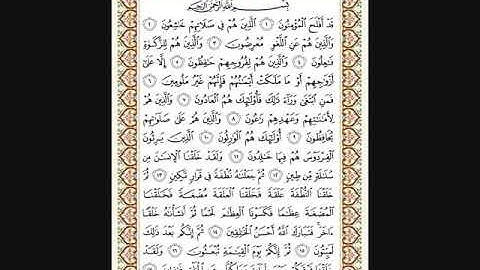 بِسْمِ اللَّهِ الرَّحْمَٰنِ الرَّحِيمِ
قَدْ أَفْلَحَ الْمُؤْمِنُونَ ١ الَّذِينَ هُمْ فِي صَلَاتِهِمْ خَاشِعُونَ ٢
وَالَّذِينَ هُمْ عَنِ اللَّغْوِ مُعْرِضُونَ ٣ وَالَّذِينَ هُمْ لِلزَّكَاةِ
فَاعِلُونَ ٤ وَالَّذِينَ هُمْ لِفُرُوجِهِمْ حَافِظُونَ ٥ إِلَّا عَلَىٰ
أَزْوَاجِهِمْ أَوْ مَا مَلَكَتْ أَيْمَانُهُمْ فَإِنَّهُمْ غَيْرُ مَلُومِينَ ٦
فَمَنِ ابْتَغَىٰ وَرَاءَ ذَٰلِكَ فَأُولَٰئِكَ هُمُ الْعَادُونَ ٧ وَالَّذِينَ هُمْ
لِأَمَانَاتِهِمْ وَعَهْدِهِمْ رَاعُونَ ٨ وَالَّذِينَ هُمْ عَلَىٰ صَلَوَاتِهِمْ
يُحَافِظُونَ ٩ أُولَٰئِكَ هُمُ الْوَارِثُونَ ١٠ الَّذِينَ يَرِثُونَ
الْفِرْدَوْسَ هُمْ فِيهَا خَالِدُونَ ١١ وَلَقَدْ خَلَقْنَا الْإِنْسَانَ مِنْ
سُلَالَةٍ مِنْ طِينٍ ١٢ ثُمَّ جَعَلْنَاهُ نُطْفَةً فِي قَرَارٍ مَكِينٍ ١٣ ثُمَّ
خَلَقْنَا النُّطْفَةَ عَلَقَةً فَخَلَقْنَا الْعَلَقَةَ مُضْغَةً فَخَلَقْنَا
الْمُضْغَةَ عِظَامًا فَكَسَوْنَا الْعِظَامَ لَحْمًا ثُمَّ أَنْشَأْنَاهُ خَلْقًا
آخَرَ فَتَبَارَكَ اللَّهُ أَحْسَنُ الْخَالِقِينَ ١٤ ثُمَّ إِنَّكُمْ بَعْدَ ذَٰلِكَ
لَمَيِّتُونَ ١٥ ثُمَّ إِنَّكُمْ يَوْمَ الْقِيَامَةِ تُبْعَثُونَ ١٦ وَلَقَدْ